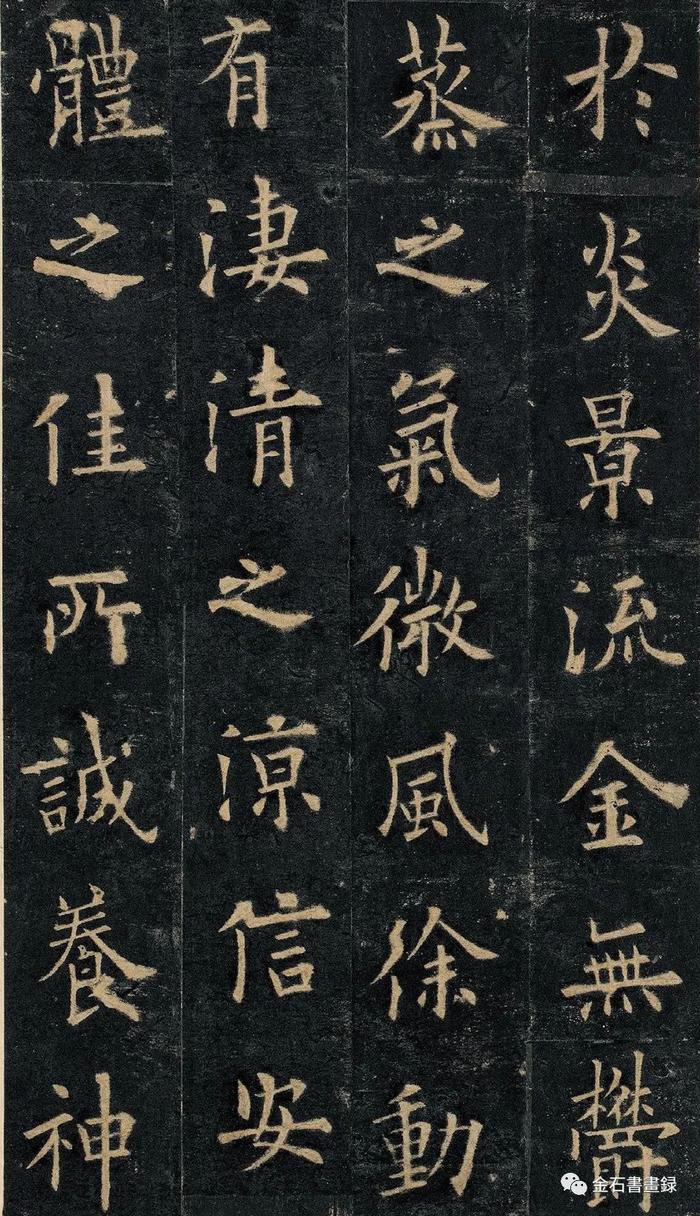 於炎景流金無鬱
蒸之氣微風徐動
有淒清之涼信安
體之佳所誠養神
金石書畫録